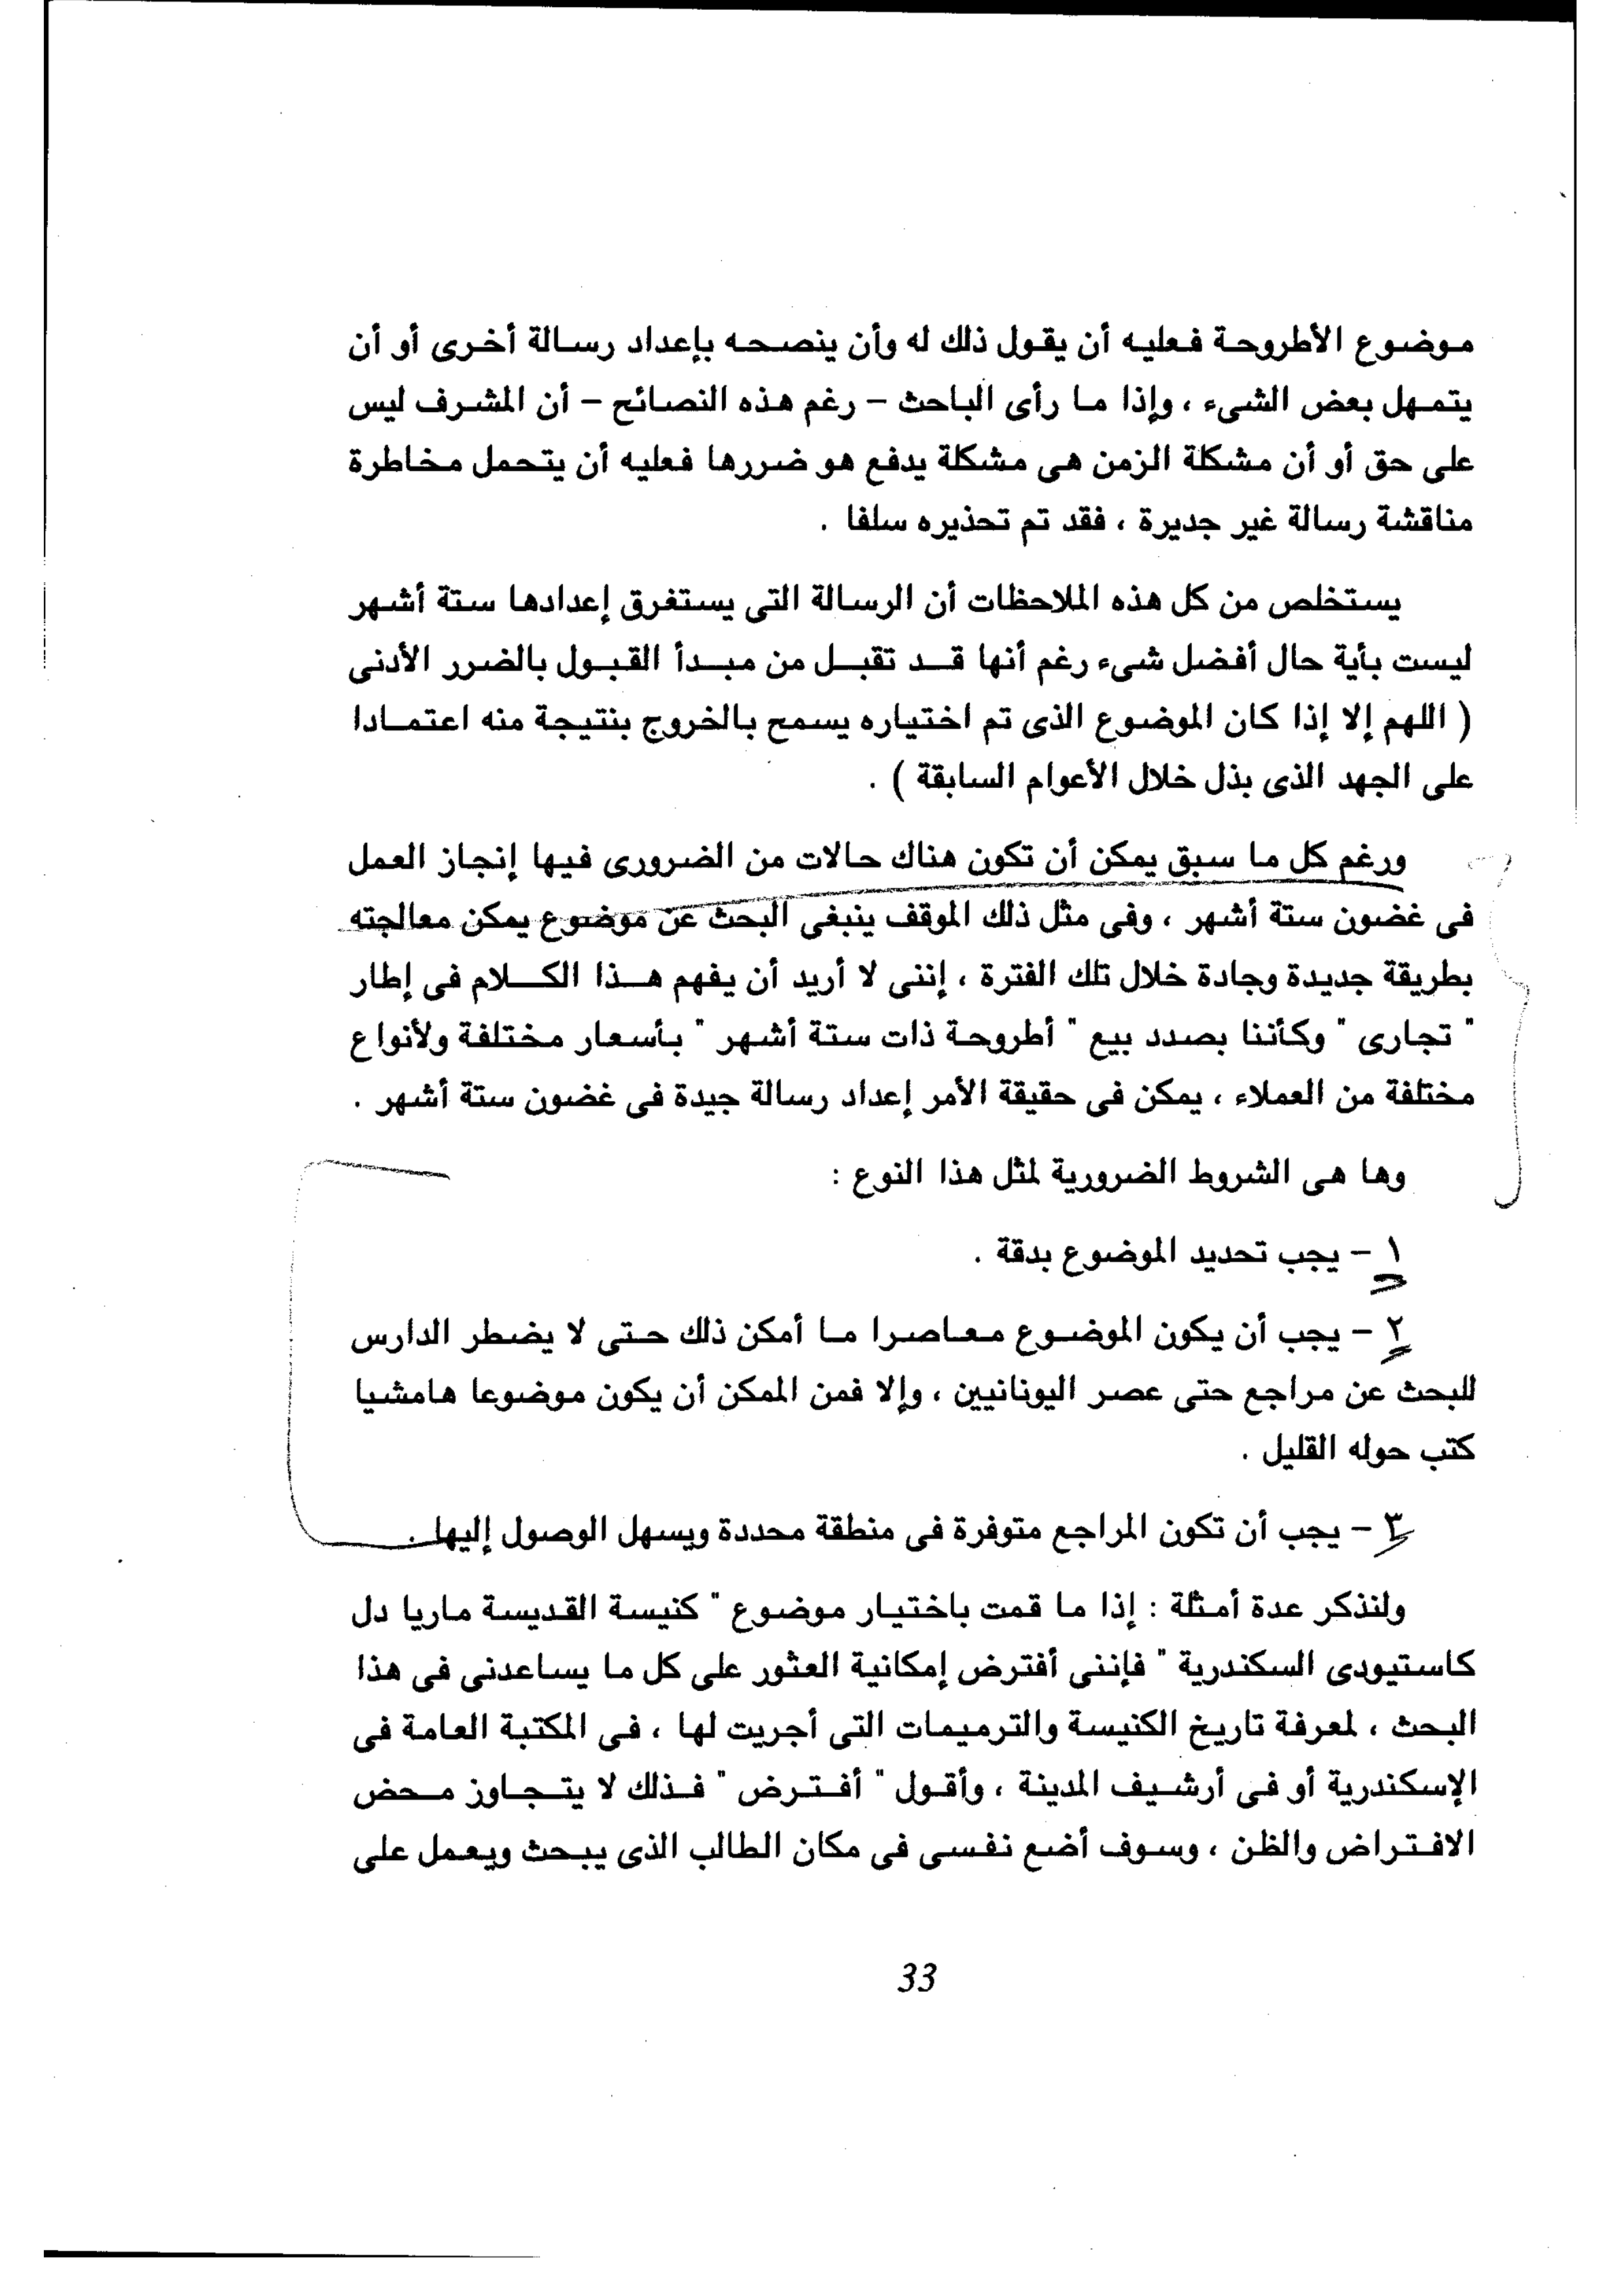 موضوع الأطروحة فعليه أن يقول ذلك له وأن ينصحه بإعداد رسالة أخرى أو أن
يتمهل بعض الشىء ، وإذا ما رأى الباحث – رغم هذه النصائح – أن المشرف ليس
على حق أو أن مشكلة الزمن هى مشكلة يدفع هو ضررها فعليه أن يتحمل مخاطرة
مناقشة رسالة غير جديرة ، فقد تم تحذيره سلفا .
يستخلص من كل هذه الملاحظات أن الرسالة التى يستغرق إعدادها ستة أشهر
ليست بأية حال أفضل شىء رغم أنها قد تقبل من مبدأ القبول بالضرر الأدنى
( اللهم إلا إذا كان الموضوع الذى تم اختياره يسمح بالخروج بنتيجة منه اعتمادا
على الجهد الذى بذل خلال الأعوام السابقة ) .
ورغم كل ما سبق يمكن أن تكون هناك حالات من الضرورى فيها إنجاز العمل
فى غضون ستة أشهر ، وفى مثل ذلك الموقف ينبغى البحث عن موضوع يمكن معالجته
بطريقة جديدة وجادة خلال تلك الفترة ، إننى لا أريد أن يفهم هذا الكلام فى إطار
" تجارى " وكأننا بصدد بيع " أطروحة ذات ستة أشهر " بأسعار مختلفة ولأنواع
مختلفة من العملاء ، يمكن فى حقيقة الأمر إعداد رسالة جيدة فى غضون ستة أشهر .
وها هى الشروط الضرورية لمثل هذا النوع :
١ – يجب تحديد الموضوع بدقة .
٢ – يجب أن يكون الموضوع معاصرا ما أمكن ذلك حتى لا يضطر الدارس
للبحث عن مراجع حتى عصر اليونانيين ، وإلا فمن الممكن أن يكون موضوعا هامشيا
كتب حوله القليل .
٣ – يجب أن تكون المراجع متوفرة فى منطقة محددة ويسهل الوصول إليها .
ولنذكر عدة أمثلة : إذا ما قمت باختيار موضوع " كنيسة القديسة ماريا دل
كاستيودى السكندرية " فإننى أفترض إمكانية العثور على كل ما يساعدنى فى هذا
البحث ، لمعرفة تاريخ الكنيسة والترميمات التى أجريت لها ، فى المكتبة العامة فى
الإسكندرية أو فى أرشيف المدينة ، وأقول " أفترض " فذلك لا يتجاوز محض
الافتراض والظن ، وسوف أضع نفسى فى مكان الطالب الذى يبحث ويعمل على
33